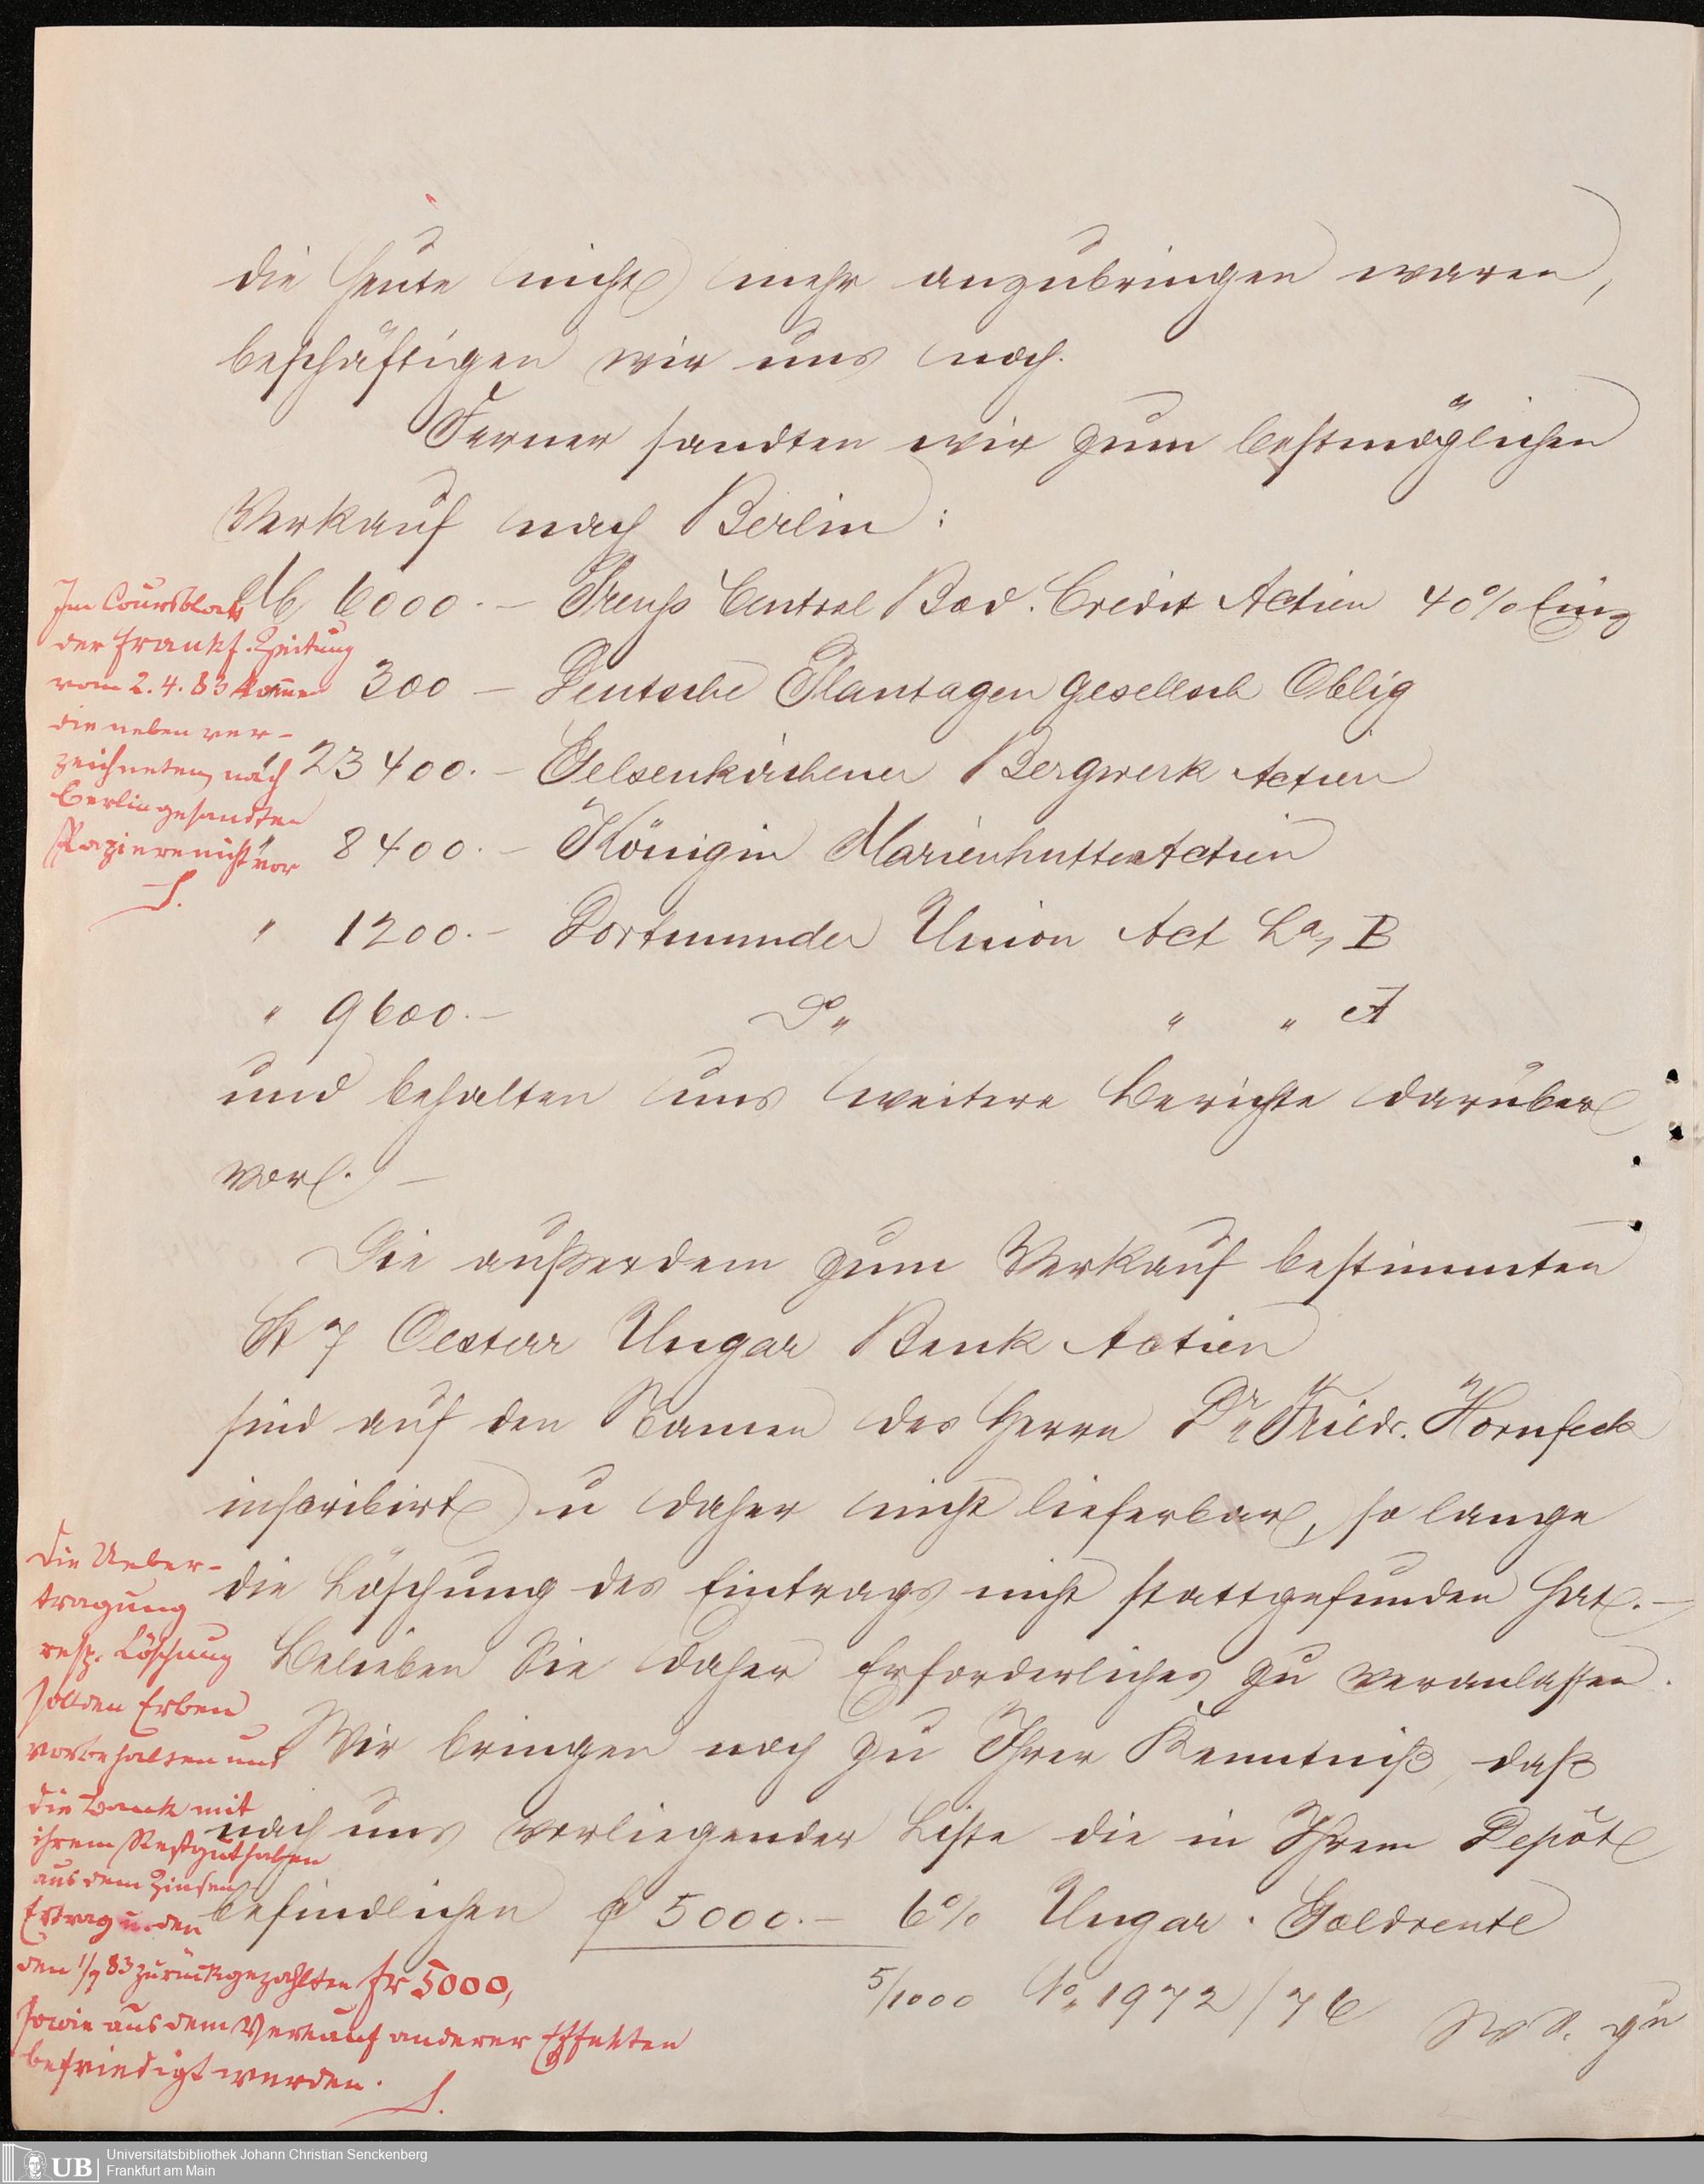 die heute nicht mehr anzubringen waren,
beschäftigen wir uns noch.
Ferner sandten wir zum bestmöglichen
Verkauf nach Berlin:
M 6000.- Preuss Central Bod. Credit Actien 40% Einz
300 - Deutsche Plantagen Gesellsch Oblig
" 23400.- Gelsenkirchener Bergwerk Actien
" 8400.- Königin Marienhütten Actien
" 1200.- Dortmunder Union Act La B
" 9600.- Do " " A
und behalten uns weitere Berichte darüber
vor. -
Die außerdem zum Verkauf bestimmten
St 7 Oesterr Ungar Bank Actien
sind auf den Namen des Herrn Dr Friedr. Hornfeck
inscribirt u daher nicht lieferbar, so lange
die Löschung des Eintrags nicht stattgefunden hat. -
Belieben Sie daher Erforderliches zu veranlassen.
Wir bringen noch zu Ihrer Kenntniß, daß
nach uns vorliegender Liste die in Ihrem Depôt
befindlichen f 5000.- 6% Ungar. Goldrente
5/1000 No 1972/76
Im Coursblatt
der Frankf. Zeitung
vom 2.4.83 kommen
die neben ver-
zeichneten, nach
Berlin gesandten
Papiere nicht vor
S.
Die Ueber-
tragung
resp. Löschung
soll den Erben
vorbehalten und
die Bank mit
ihrem Restguthaben
aus dem Zinsen
Ertrag u. den
den 1/7 83 zurückgezahlten fr 5000,
sowie aus dem Verkauf anderer Effekten
befriedigt werden.
S.
UB
Universitätsbibliothek Johann Christian Senckenberg
Frankfurt am Main